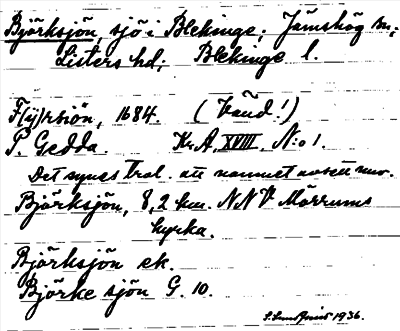 Byörksjön, sjö i Blekinge; Jämshög sn;
Listers hd; Blekinge l.
F(ÿ)rsiön, 1684. (          !)
P. Gedda. Kr. A. XVIII, N:o 1.
Det synes trol. att namnet avsett nuv.
Björksjön, 8,2 km. NNV Mörrums
kyrka.
Björksjön ek.
Björke sjön G. 10.
1936.